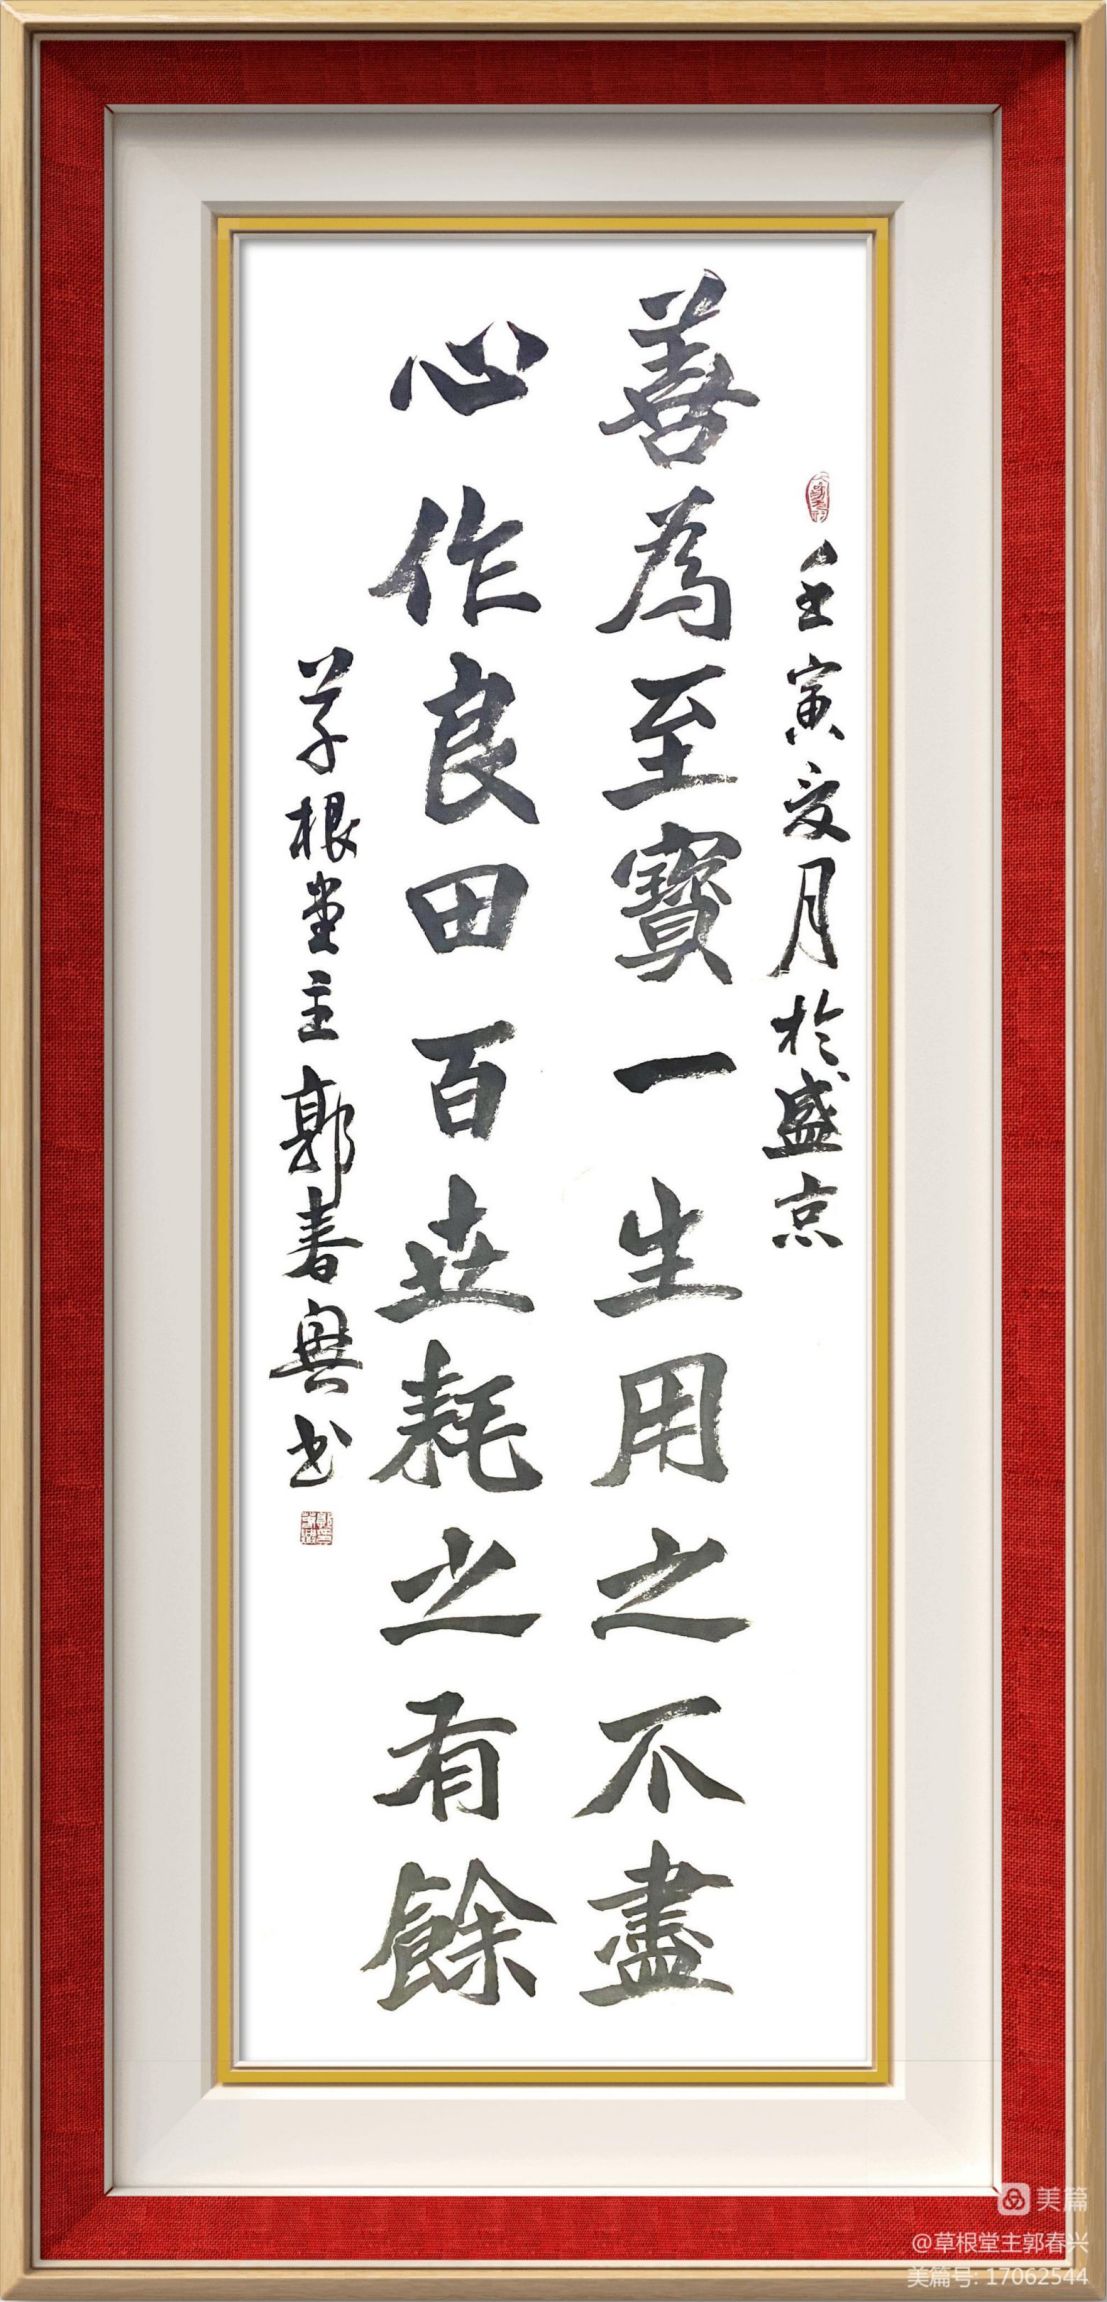 壬寅夏月於盛京
善為至寶一生用之不盡
心作良田百世耕之有餘
草根堂主郭春興书
美篇
@草根堂主郭春兴
美篇号: 17062544